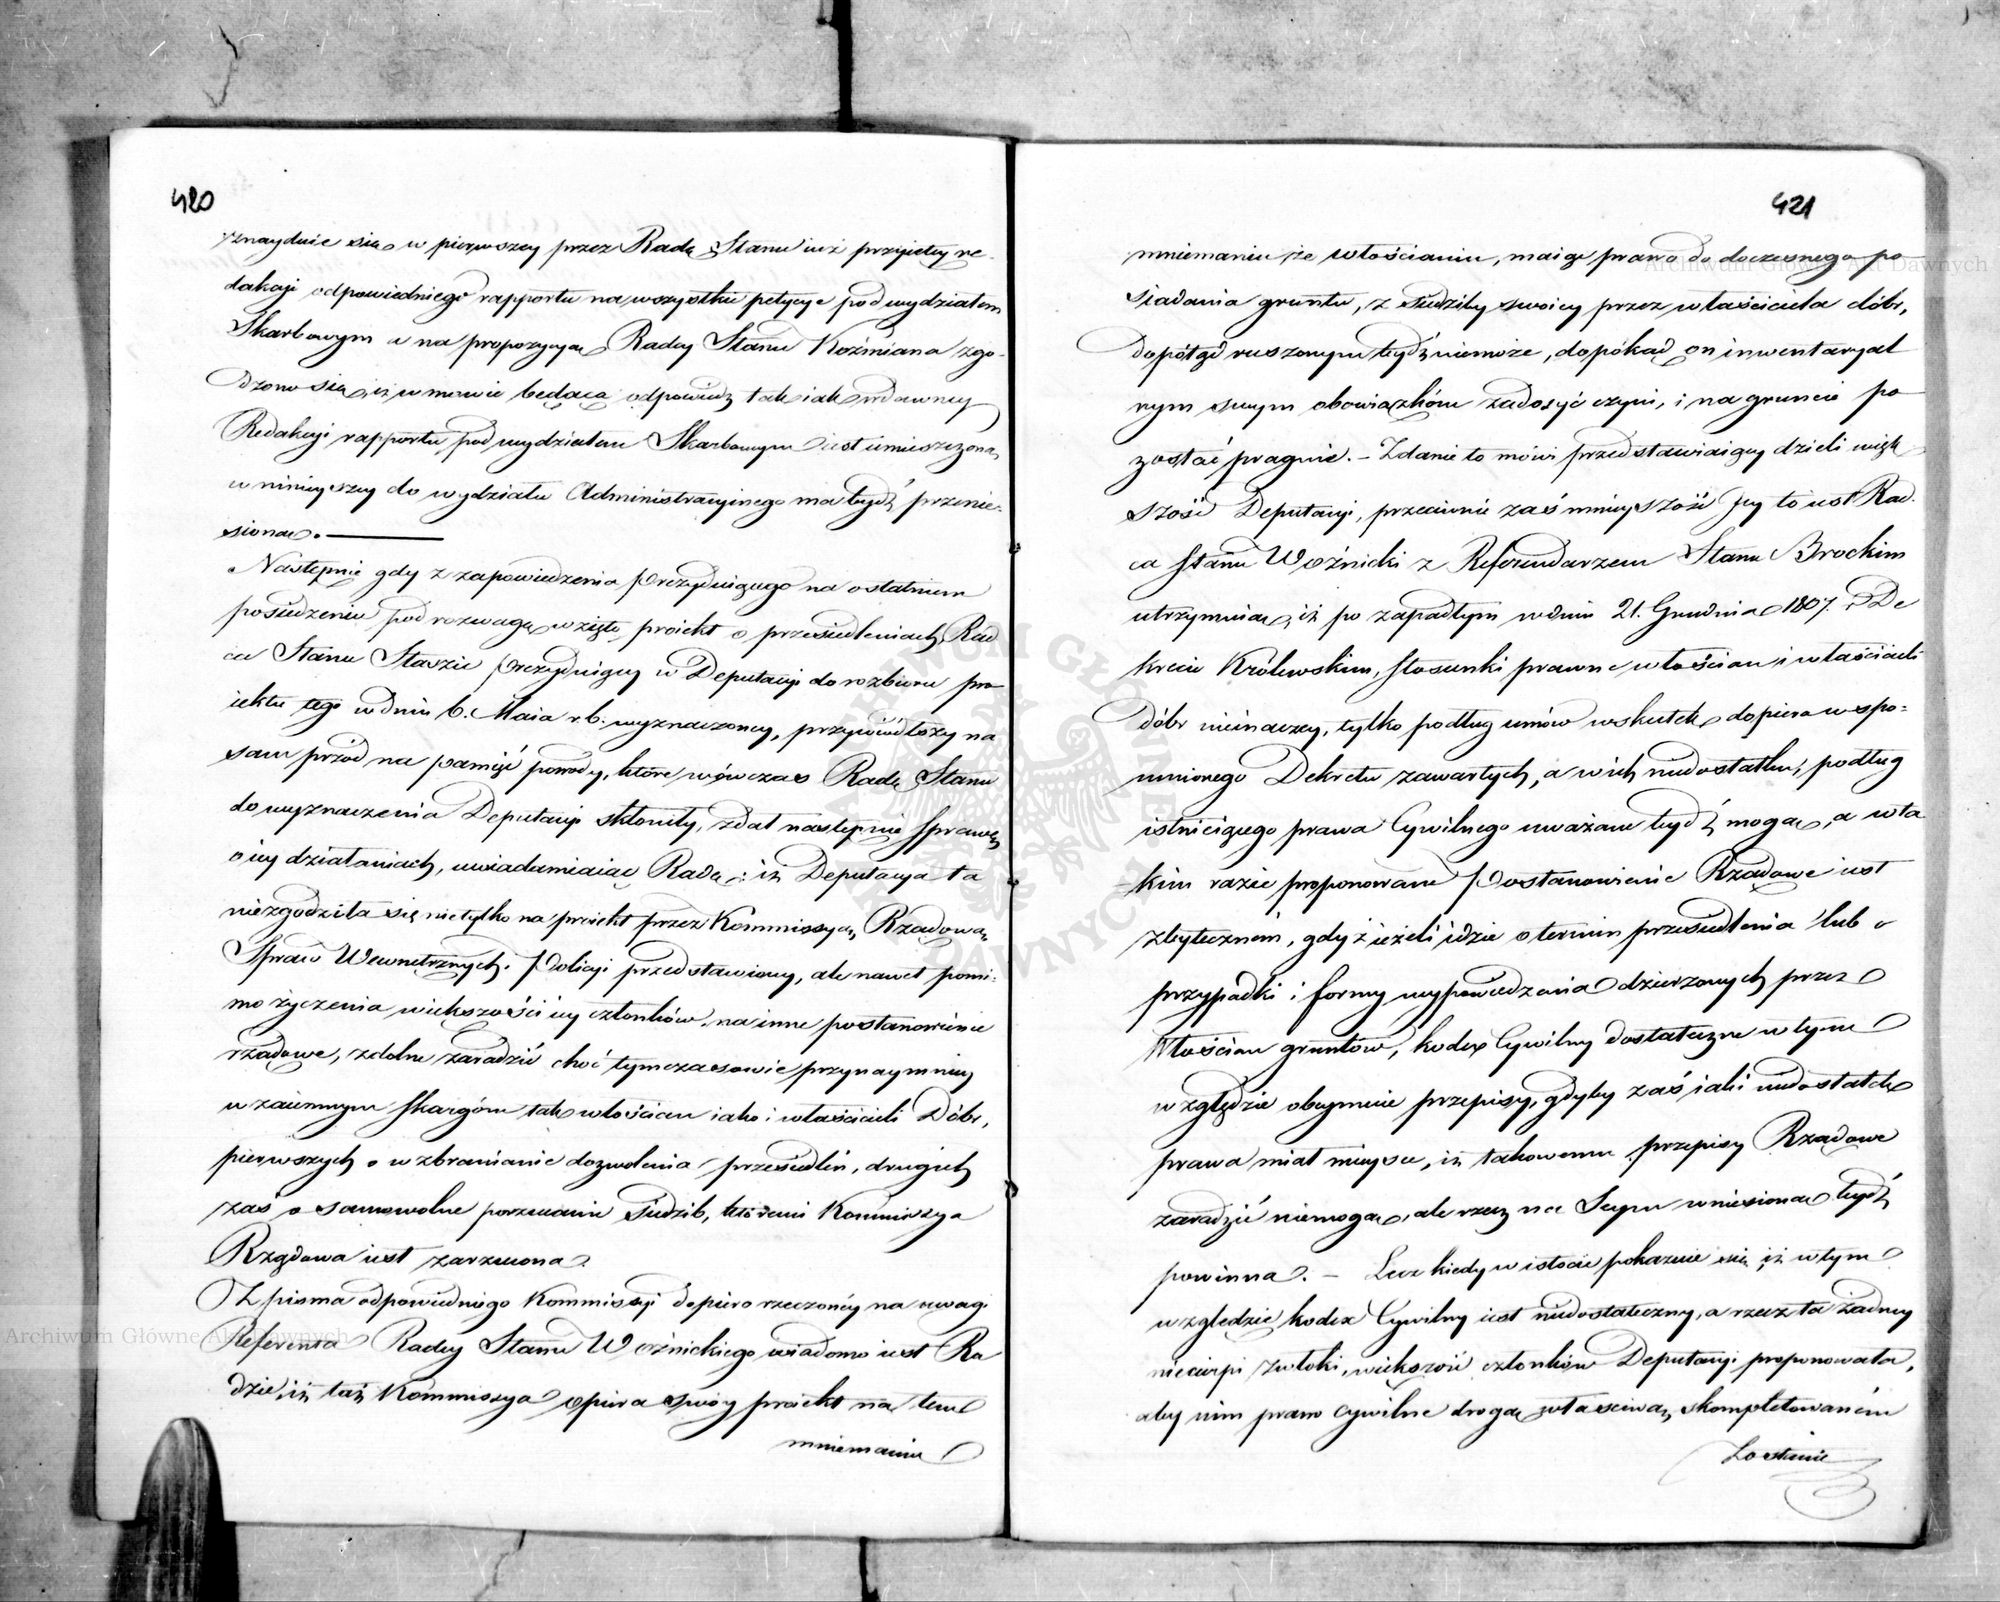 420
znayduie się w pierwszey przez Radę Stanu iuż przyiętey re-
dakcyi odpowiedniego rapportu na wszystkie petycye pod wydziałem
Skarbowym a na propozycyą Radcy Stanu Koźmiana zgo-
dzono się, iż w mowie będąca odpowiedz tak iak w dawney
Redakcyi rapportu pod wydziałem Skarbowym iest umieszczona,
w ninieyszey do wydziału Administracyinego ma bydź przenie-
siona. —
Następnie gdy z zapowiedzenia Prezyduiącego na ostatniem
posiedzeniu pod rozwagę wzięto proiekt o przesiedleniach, Rad
ca Stanu Staszic Prezyduiący w Deputacyi do rozbioru pro
iektu tego w dniu 6. Maia r. b. wyznaczoney, przywiódłszy na
sam przód na pamięć powody, które wówczas Radę Stanu
do wyznaczenia Deputacyi skłoniły, zdał następnie sprawę
o iey działaniach, uwiadamiaiąc Radę: iż Deputacya ta
niezgodziła się nietylko na proiekt przez Kommissyą Rządową
Spraw Wewnętrznych i Policyi przedstawiony, ale nawet pomi-
mo życzenia większości iey członków na inne postanowienie
rządowe, zdolne zaradzić choć tymczasowie przynaymniey
wzaiemnym skargóm tak włościan iako i właścicieli Dóbr,
pierwszych o wzbranianie dozwolenia przesiedleń, drugich
zaś o samowolne porzucanie siedzib, któremi Kommissya
Rządowa iest zarzucona.
Z pisma odpowiedniego Kommissyi dopiero rzeczonéy na uwagi
Referenta Radcy Stanu Woźnickiego wiadomo iest Ra
dzie, iż taż Kommissya opiera swóy proiekt na tem
mniemaniu
421
mniemaniu, że włościanin, maiąc prawo do doczesnego po
siadania gruntu, z siedziby swoiey przez właściciela dóbr,
dopótąd ruszonym bydź niemoże, dopókąd on inwentarzal
nym swym obowiązkóm zadosyć czyni, i na gruncie po
zostać pragnie. – Zdanie to mówi przedstawiaiący dzieli więk
szość Deputacyi, przeciwnie zaś mnieyszość Jey to iest Rad-
ca Stanu Woźnicki z Referendarzem Stanu Brockim
utrzymuią, iż po zapadłym w dniu 21. Grudnia 1807. r. De
krecie Królewskim, stosunki prawne włościan i właścicieli
dóbr nieinaczey, tylko podług umów wskutek dopiero wspo-
mnionego Dekretu zawartych, a w ich niedostatku, podług
istnieiącego prawa Cywilnego uważane bydź mogą, a w ta
kim razie proponowane Postanowienie Rządowe iest
zbytecznem, gdyż ieżeli idzie o termin przesiedlenia lub o
przypadki i formy wypowiedzenia dzierzonych przez
Włościan gruntów, kodex Cywilny dostateczne w tym
względzie obeymuie przepisy, gdyby zaś iaki niedostatek
prawa miał mieysce, iż takowemu przepisy Rządowe
zaradzić niemogą, ale rzecz na Seym wniesiona bydź
powinna. – Lecz kiedy w istocie pokazuie się, iż w tym
względzie kodex Cywilny iest niedostateczny, a rzecz ta żadney
niecierpi zwłoki, większość członków Deputacyi proponowała,
aby nim prawo cywilne drogą właściwą skompletowaném
Zostanie
Archiwum Główne Akt Dawnych
Archiwum Główne Akt Dawnych
ARCHIWUM GŁÓWNE AKT DAWNYCH